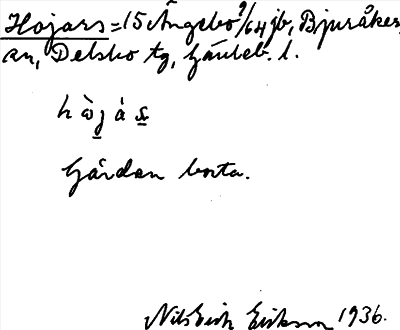 Hojars = 15 Ängebo 9/64 jb, Bjuråker,
an, Delsbo tg, Gävleb. l.
h ò j á s
Gården borta.
Nils Erik Eriksson 1936.